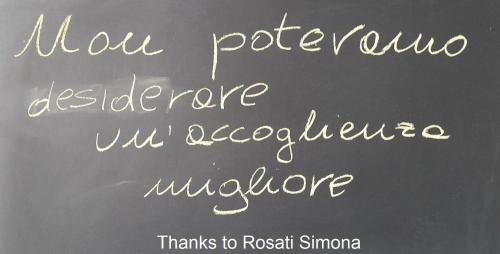 Non poteramo
desiderare
un'accoglienza
migliore
Thanks to Rosati Simona